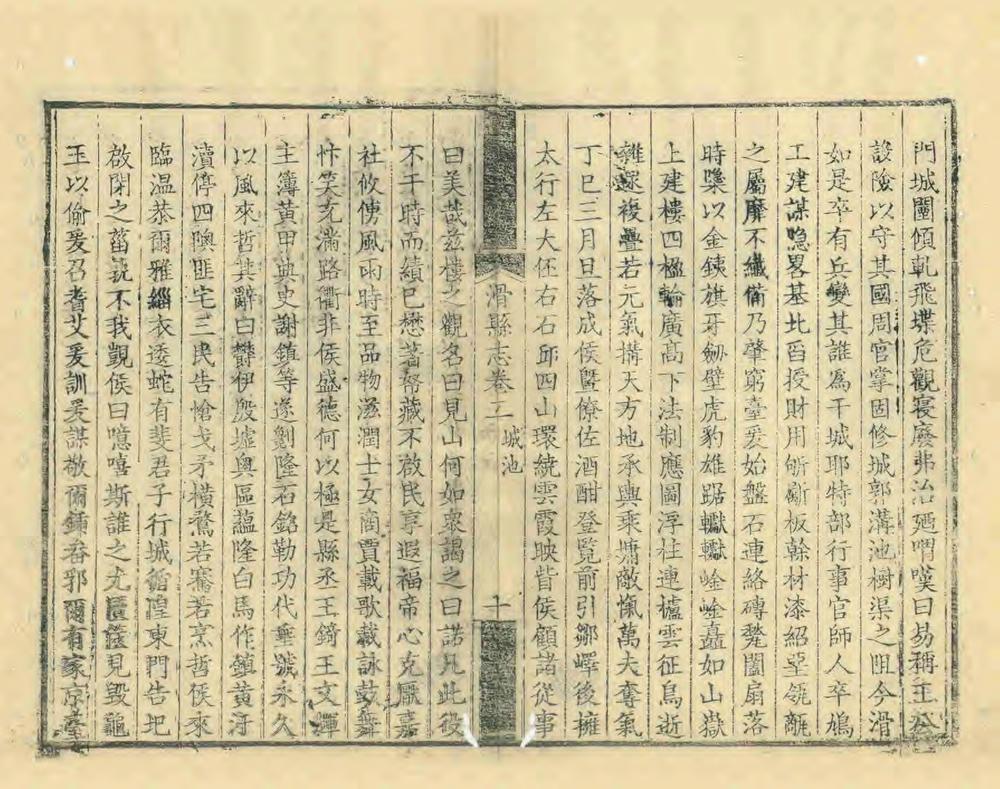 門城闉傾軋飛堞危觀寖廢弗治廼喟嘆曰易稱王公
設險以守其國周官掌固修城郭溝池樹渠之阻今滑
如是卒有兵變其誰為干城耶特部行事官師人卒鳩
工建謀隐畧基址酉授財用斫斲板榦材漆紹堊瓴甋
之屬靡不纎俻乃肇窮臺爰始盤石連絡磚甃闔扇落
時槩以金鋏旗牙劔壁虎豹雄踞巘巘崯崯矗如山嶽
上建樓四楹輪廣高下法制應圖浮柱連櫨雲征鳥逝
雜遝複疊若元氣搆天方地承輿乘墉敵愾萬夫奪氣
丁巳三月旦落成侯曁僚佐酒酣登覧前引鄒嶧後擁
太行左大伾右石邱四山環繞雲霞映眥侯顧諸從事
滑縣志卷二 城池 十
曰美哉茲樓之觀名曰見山何如衆謁之曰諾凡此役
不干時而績已懋蓄帑藏不啟民享遐福帝心克厭嘉
社攸俜風雨時至品物滋潤士女啇賈載歌載詠鼓舞
忭笑充滿路衢非侯盛德何以極是縣丞王錡王文潭
主簿黃甲典史謝鎮等遂劖隆石銘勒功代垂號永久
以風來哲其辭曰欝伊殷墟奥區蘊隆白馬作鎮黄河
瀆停四隩匪宅三民告愴戈矛橫鶩若騫若烹哲侯來
臨温恭爾雅緇衣逶蛇有斐君子行城循隍東門告圯
啟閉之菑䇄不我覯侯曰噫嘻斯誰之尤匵見毀龜
玉以偷爰召耆艾爰訓爰謀敬爾鍤畚郛爾有家京臺